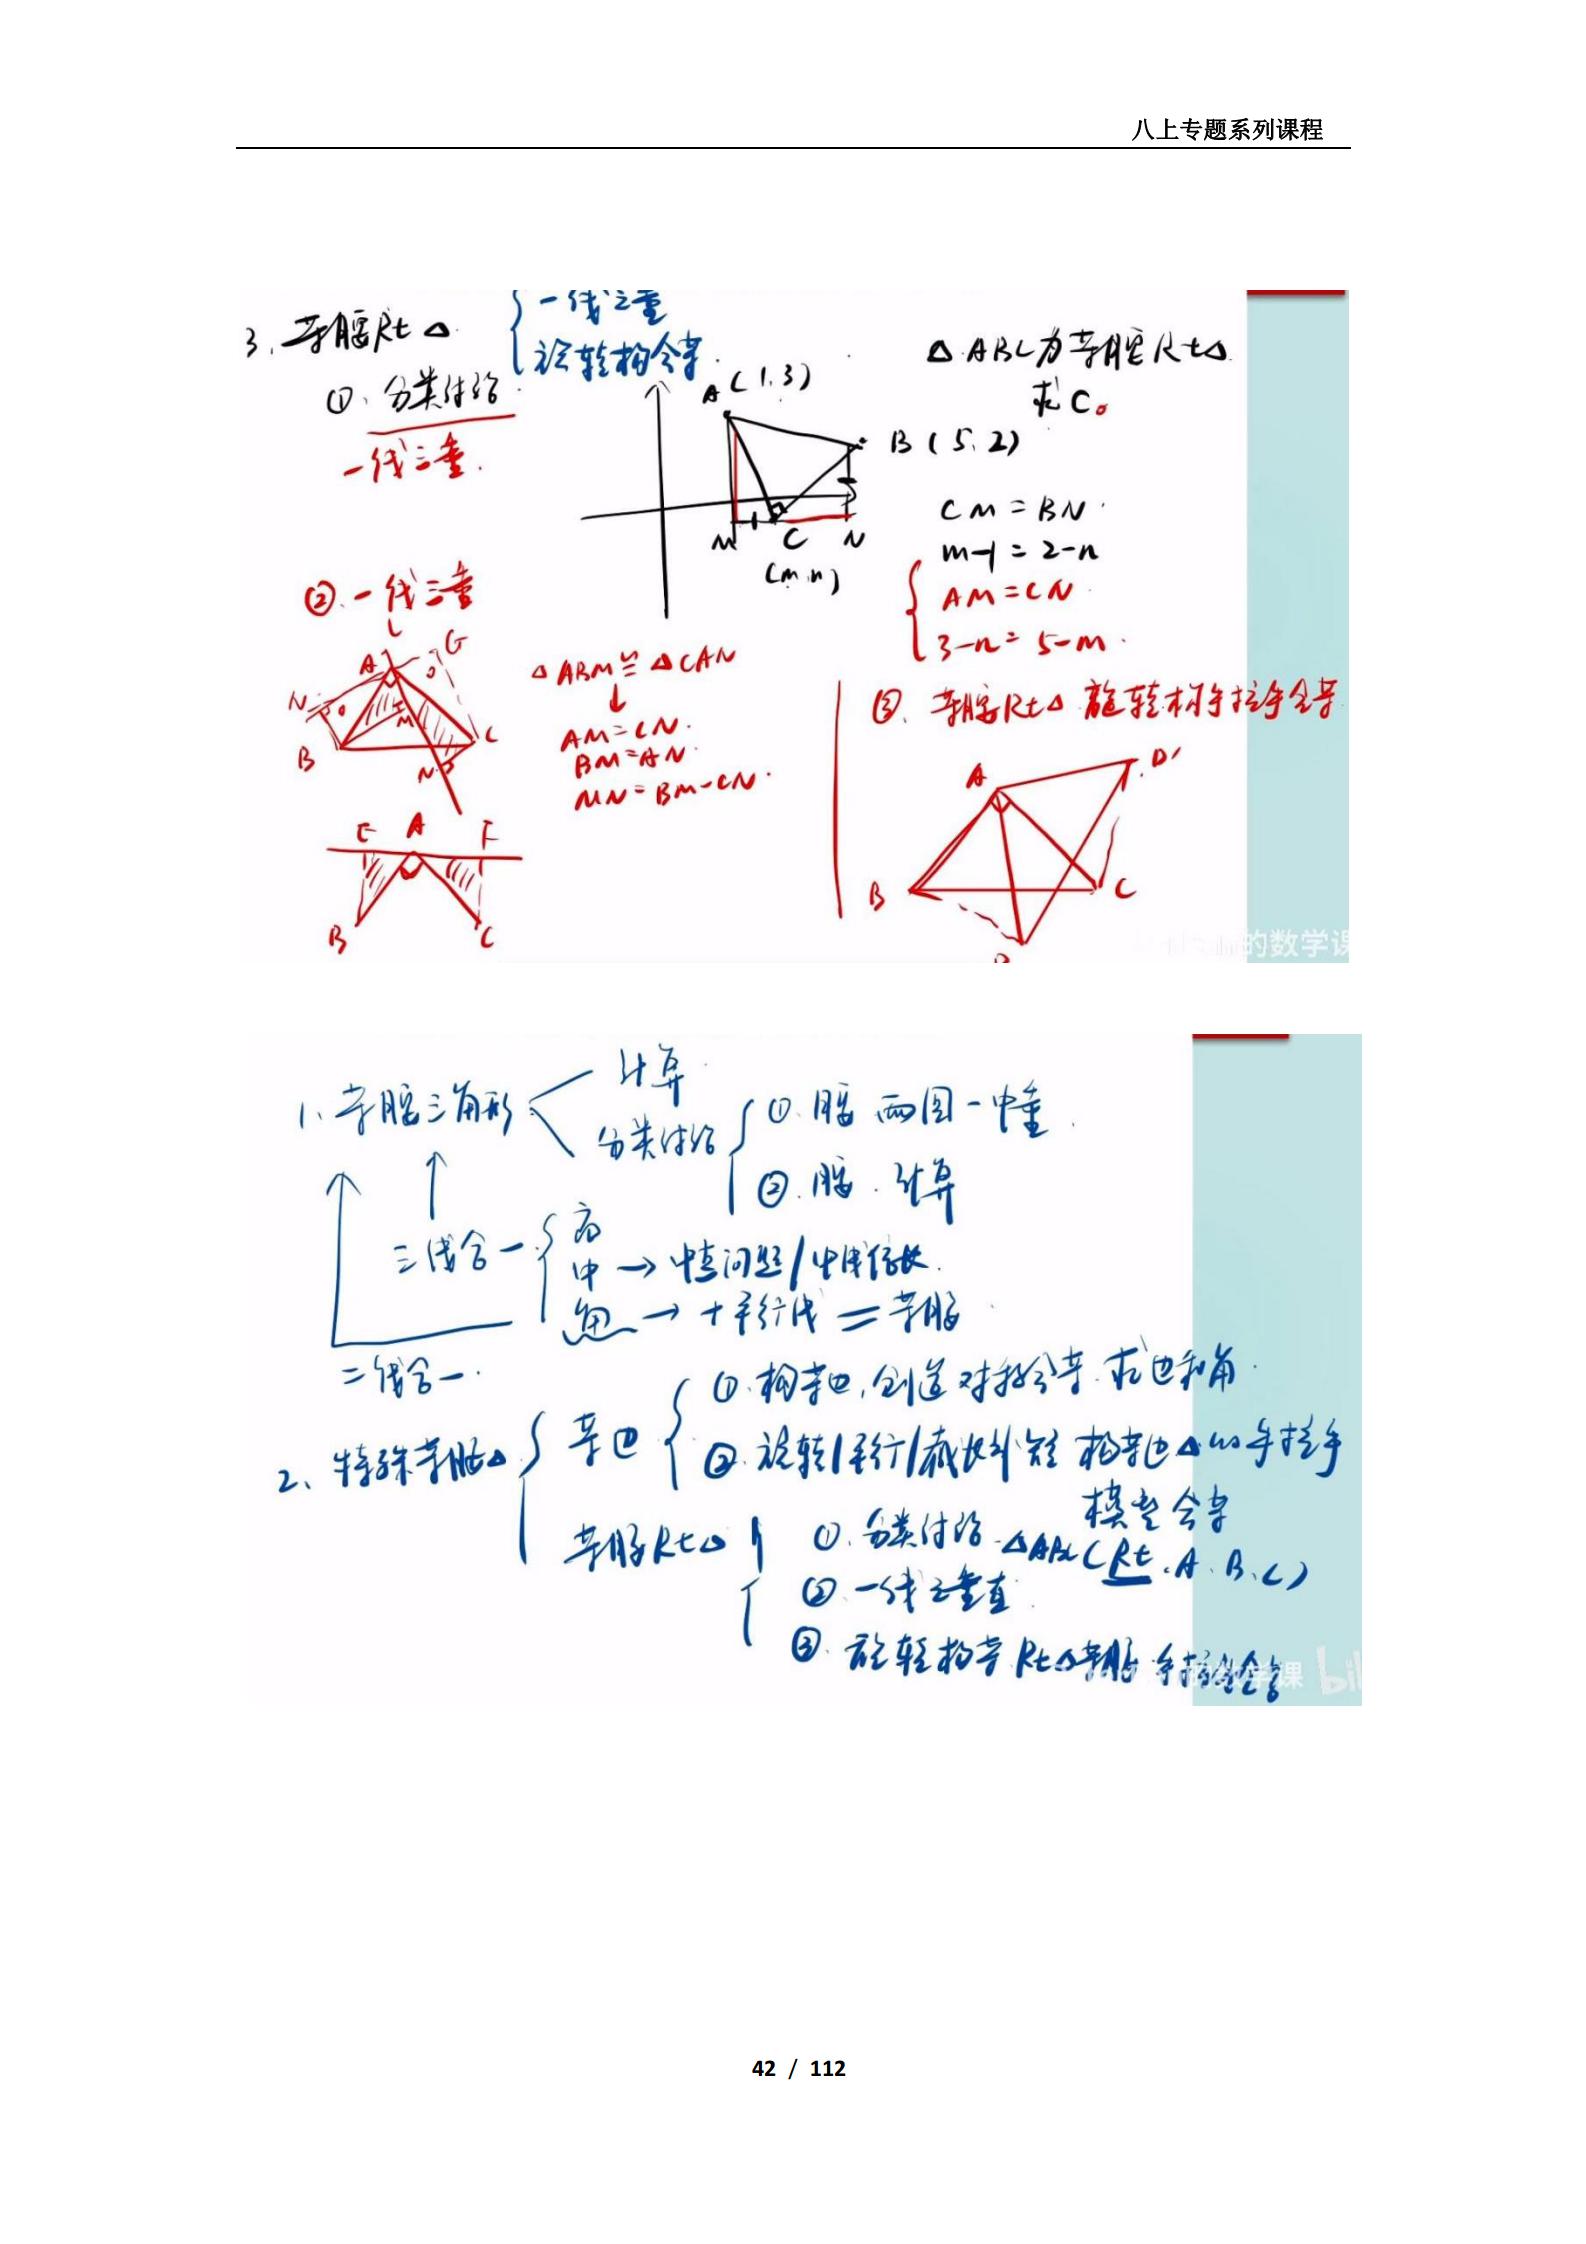 八上专题系列课程
一线三垂
3、等腰Rt△
旋转构全等
△ABC为等腰Rt△
①、分类讨论
A(1,3)
求C。
一线三垂.
B(5,2)
CM=BN
M C N
m-1=2-n
(m,n)
②、一线三垂
AM=CN
3-n=5-m
L
G
A
△ABM≌△CAN
N
M
③、等腰Rt△旋转构手拉手全等
AM=CN.
B
C
BM=AN.
N
MN=BM-CN.
D'
A
E A F
B
C
B
C
的数学课
1、等腰三角形
计算
分类讨论
①.腰 两圆一中垂
②.腰.计算
三线合一
高
中→中点问题/中线倍长
角→+平行线=等腰
二线合一.
2、特殊等腰△
等边
①.构等边,创造对称全等.求边和角
②.旋转/平行/截长补短 构等边△的手拉手
模型全等
等腰Rt△
①.分类讨论.△ABC(Rt.A、B、C)
②.一线三垂直
③.旋转构等Rt△等腰手拉手全等
的数学课 bil
42 / 112